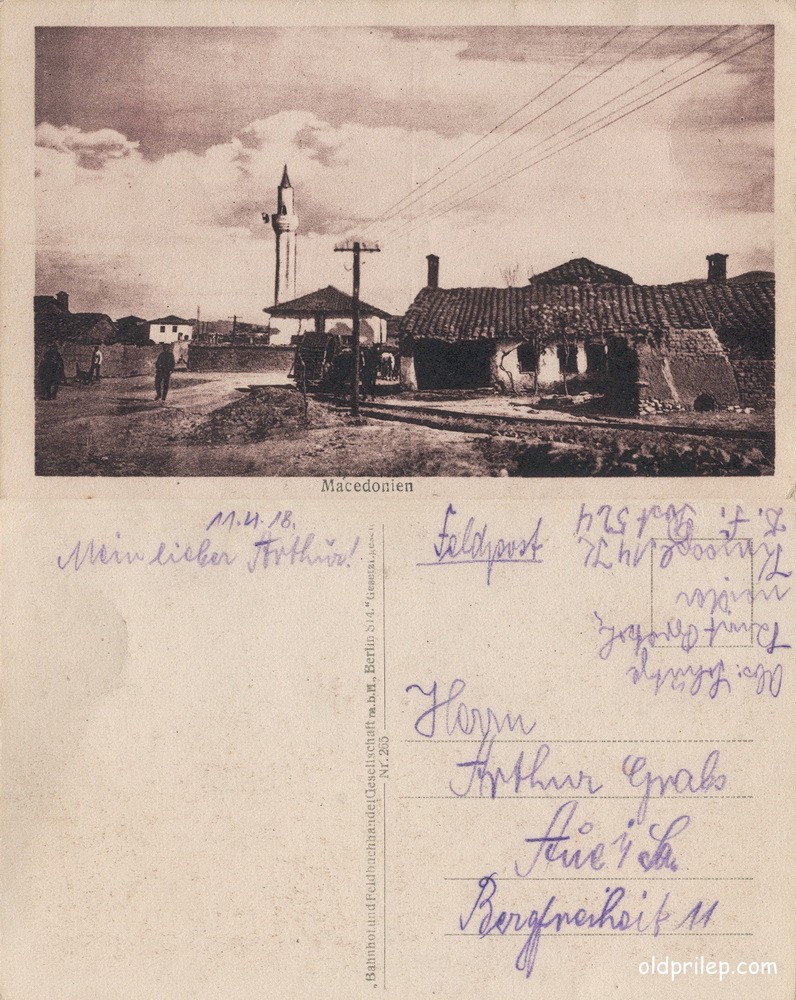 Macedonien
11.4.18.
Mein lieber Arthur!
„Bahnhof und Feldbuchhandel Gesellschaft m.b.H., Berlin S14.“ Gesetzl.
Nr. 265
Feldpost
Abs: Schütze
Kurt
Post 524
Herrn
Arthur Grabs
Aue i/Sa.
Bergfreiheit 11
oldprilep.com